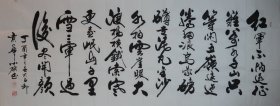 紅軍不怕遠
征難萬水千山只
等閒五嶺逶迤
騰細浪烏蒙
磅礴走泥丸金
沙水拍雲崖暖大
渡橋橫鐵索寒
更喜岷山千里
雪三軍過
後盡開顏
丁酉年